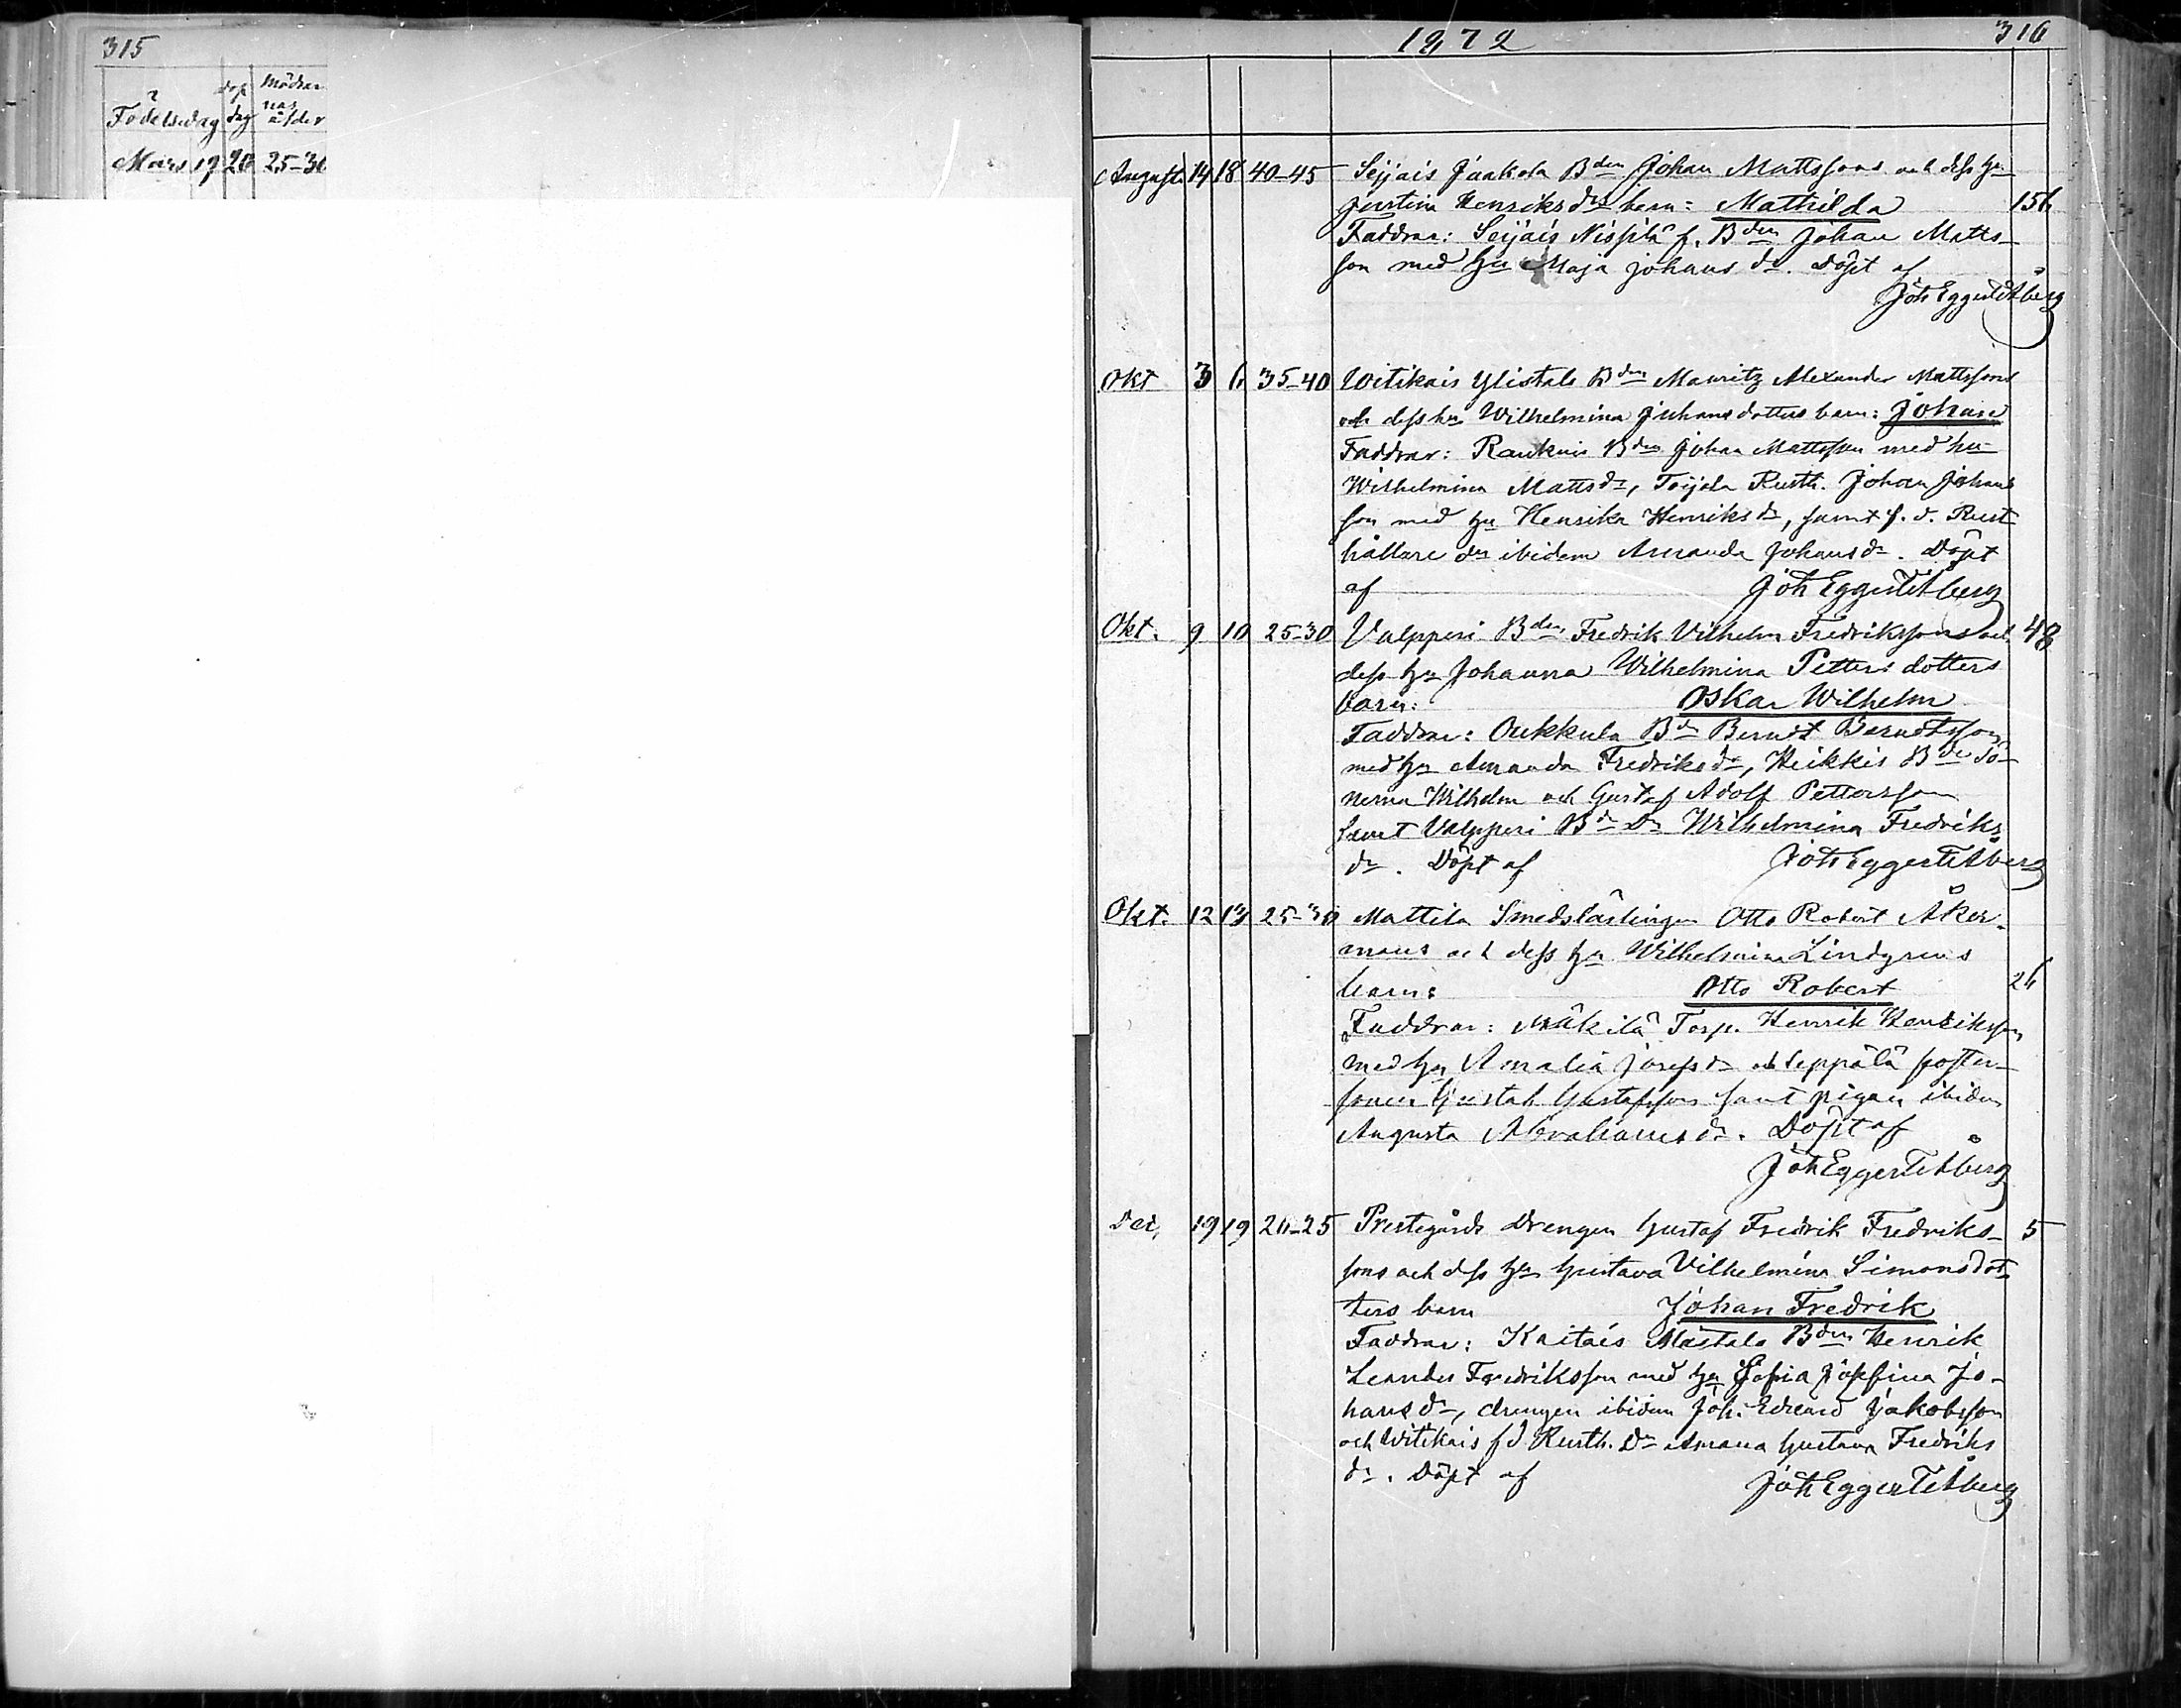 315
Födelsedag dop dag mödrarnas ålder
Mars 19 20 25-30
1872 316
Augusti 14 18 40-45 Seijais Jaakola Bden Johan Mattssons och dess hu
Justina Henriksdrs barn: Mathilda 156
Faddrar: Seijais Nissilä f. Bden Johan Matts-
son med hu Maja Johansdr. Döpt af
Joh Eggert Åberg
Okt 3 6 35-40 Witikais Ylistalo Bden Mauritz Alexander Mattssons
och dess hu Wilhelmina Juhansdotters barn: Johan
Faddrar: Raukuis Bden Johan Mattsson med hu
Wilhelmina Mattsdr, Toijola Rusth. Johan Johans
son med hu Henrika Henriksdr, samt f. d. Rust
hållare dr ibidem Amanda Johansdr. Döpt
af Joh Eggert Åberg
Okt. 9 10 25-30 Valpperi Bden Fredrik Vilhelm Fredrikssons och 48
dess hu Johanna Wilhelmina Petters dotters
barn: Oskar Wilhelm
Faddrar: Oukkula Bdn Berndt Berndtsson
med hu Amanda Fredriksdr, Heikkis Bde Sö-
nerna Wilhelm och Gustaf Adolf Pettersson
samt Valpperi Bde Dr Wilhelmina Fredriks
dr. Döpt af Joh Eggert Åberg
Okt. 12 13 25-30 Mattila Smedslärlingen Otto Robert Åker-
mans och dess hu Wilhelmina Lindgrens
barn: Otto Robert 26
Faddrar: Mäkilä Torp. Henrik Henriksson
med hu Amalia Josefsdr och Seppälä foster-
sonen Gustaf Gustafsson samt pigan ibidem
Augusta Abrahamsdr. Döpt af
Joh Eggert Åberg
Dec. 19 19 20-25 Prestegårds Drengen Gustaf Fredrik Fredriks- 5
sons och dess hu Gustava Vilhelmina Simonsdot-
ters barn Johan Fredrik
Faddrar: Kaitais Mästalo Bden Henrik
Leander Fredriksson med hu Sofia Josefina Jo-
hansdr, drengen ibidem Joh. Edvard Jakobsson
och Witikais f d Rusth. Dr Amana Gustava Fredriks
dr. Döpt af Joh Eggert Åberg